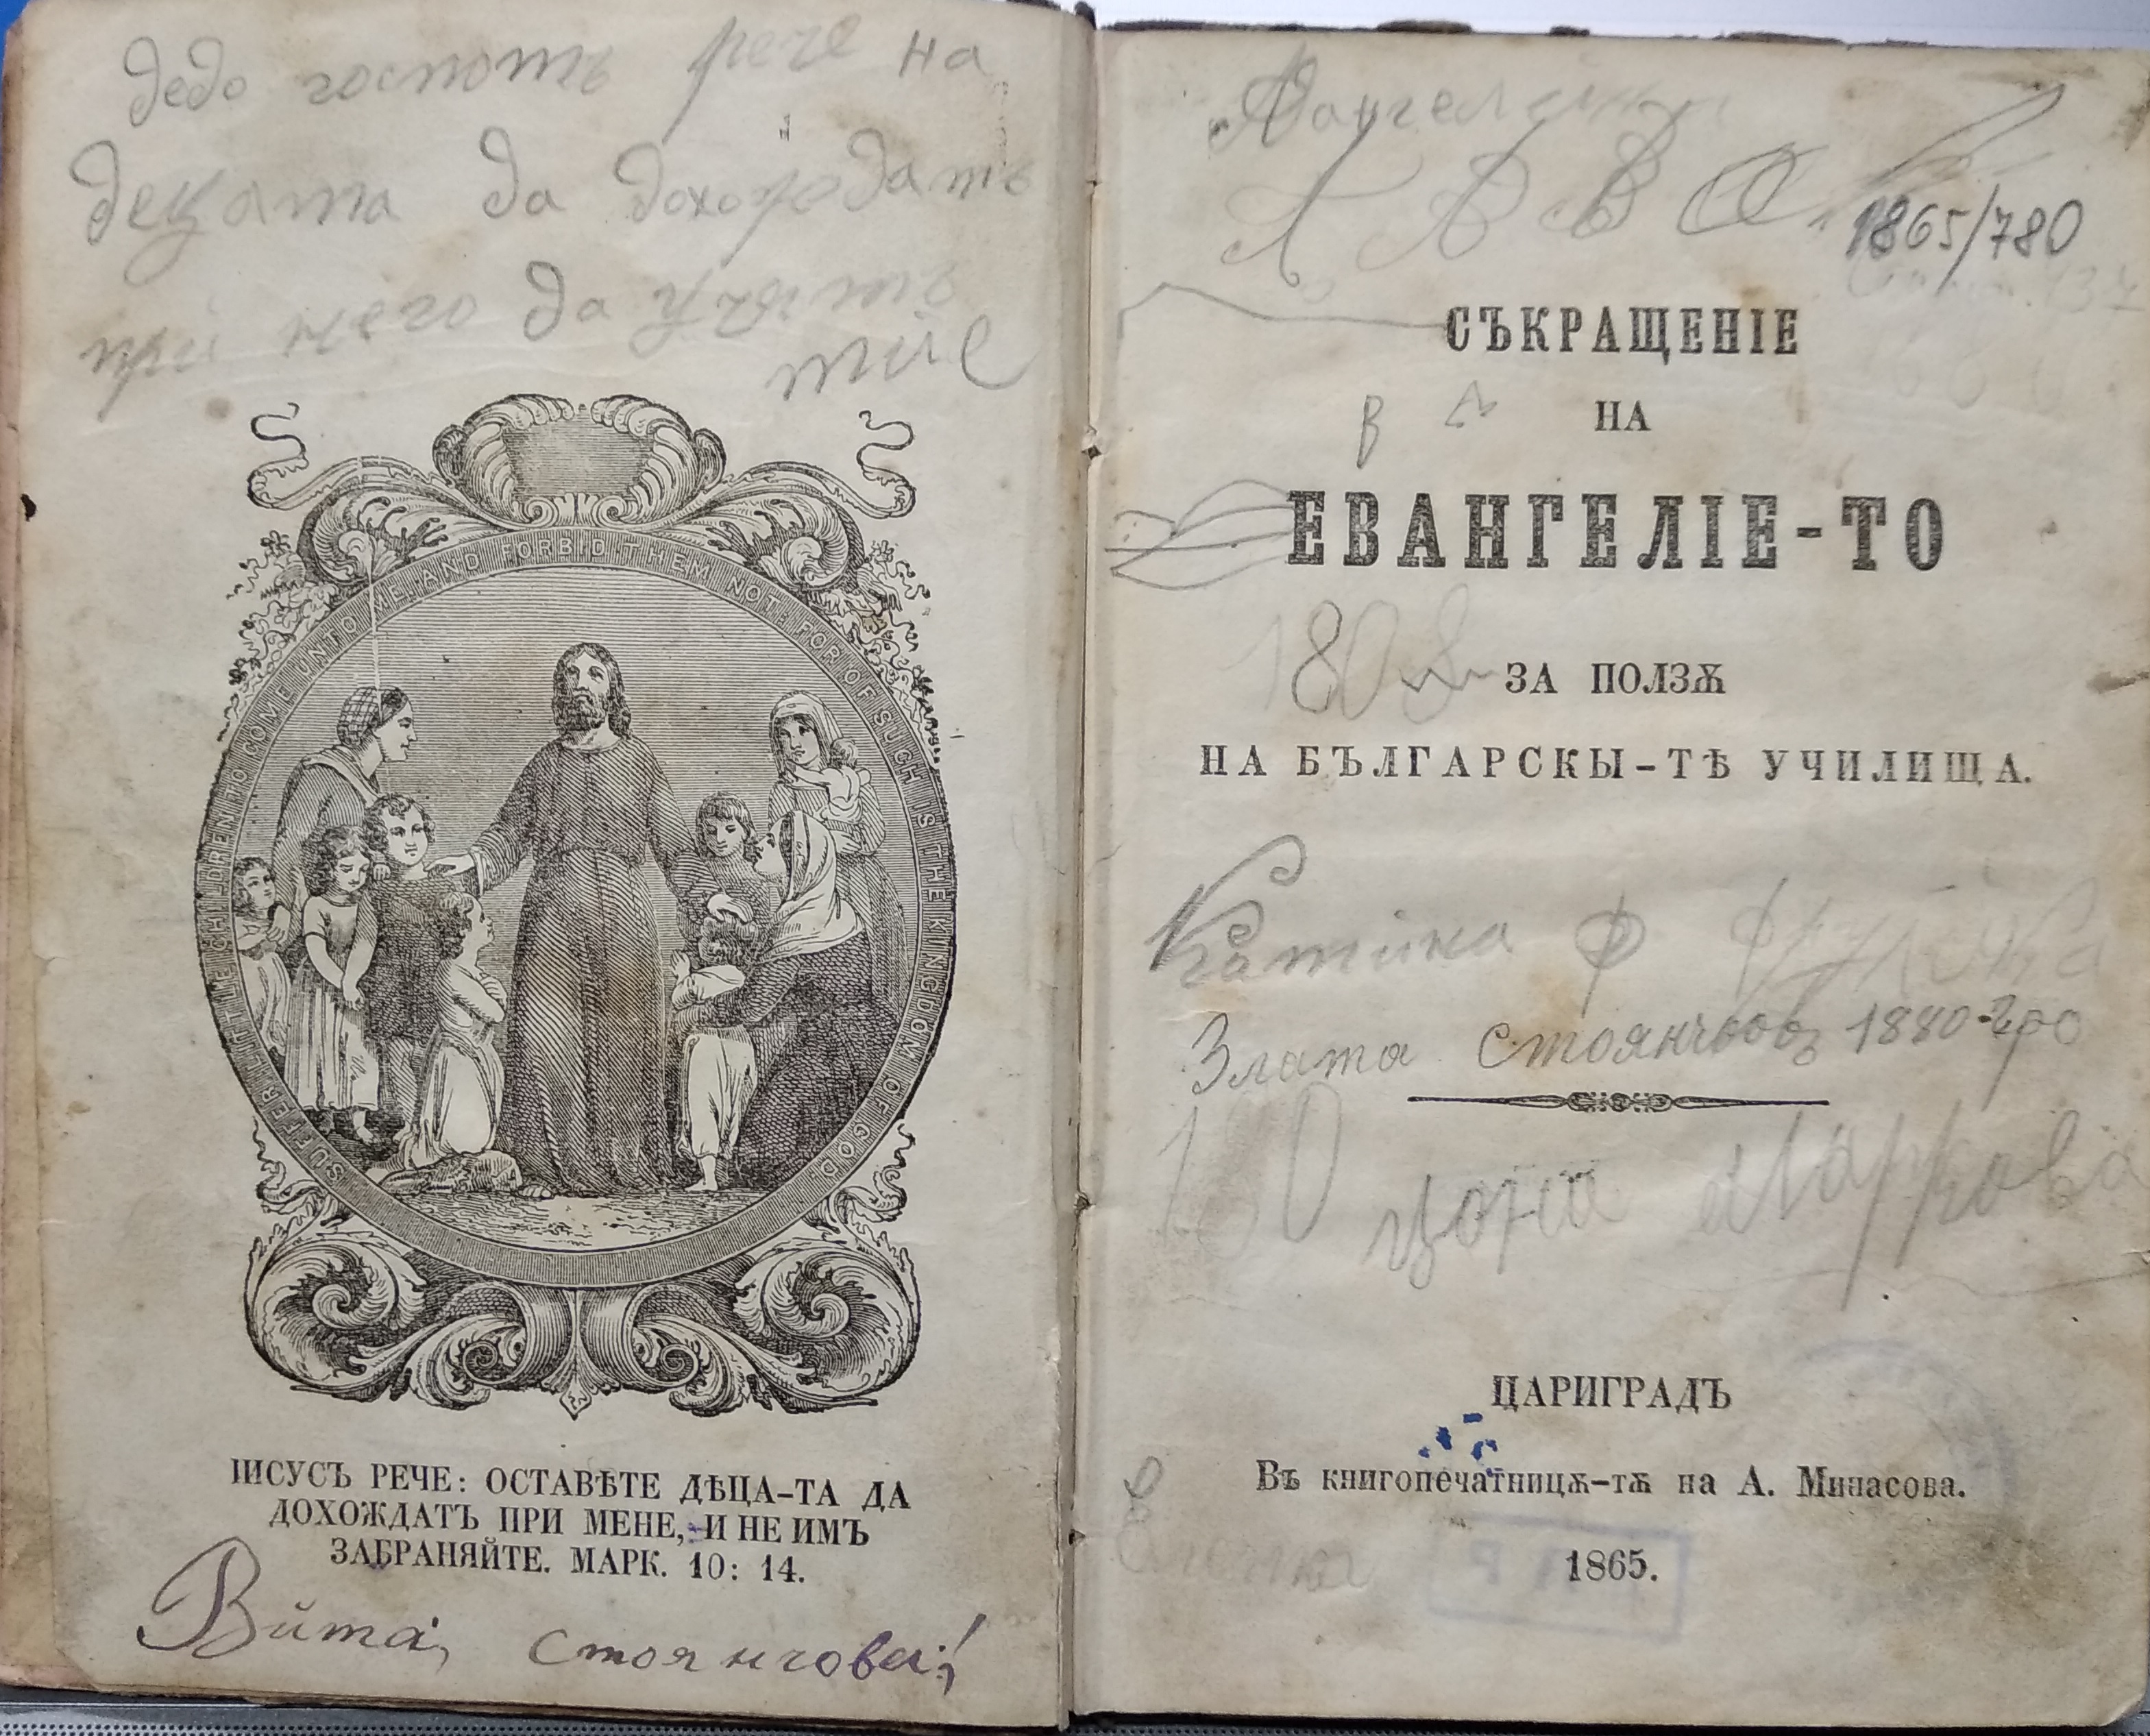 дедо господъ рече на
децата да
при него да учятъ
тие
SUFFER LITTLE CHILDREN TO COME UNTO ME, AND FORBID THEM NOT: FOR OF SUCH IS THE KINGDOM OF GOD
ІИСУСЪ РЕЧЕ: ОСТАВѢТЕ ДѢЦА-ТА ДА
ДОХОЖДАТЪ ПРИ МЕНЕ, И НЕ ИМЪ
ЗАБРАНЯЙТЕ. МАРК. 10: 14.
Вита, стоянчова!
1865/780
СЪКРАЩЕНІЕ
НА
ЕВАНГЕЛІЕ-ТО
ЗА ПОЛЗѪ
НА БЪЛГАРСКЫ-ТѢ УЧИЛИЩА.
Катинка Ф
Злата 1880
цона Маркова
ЦАРИГРАДЪ
Въ книгопечатницѫ-тѫ на А. Минасова.
1865.